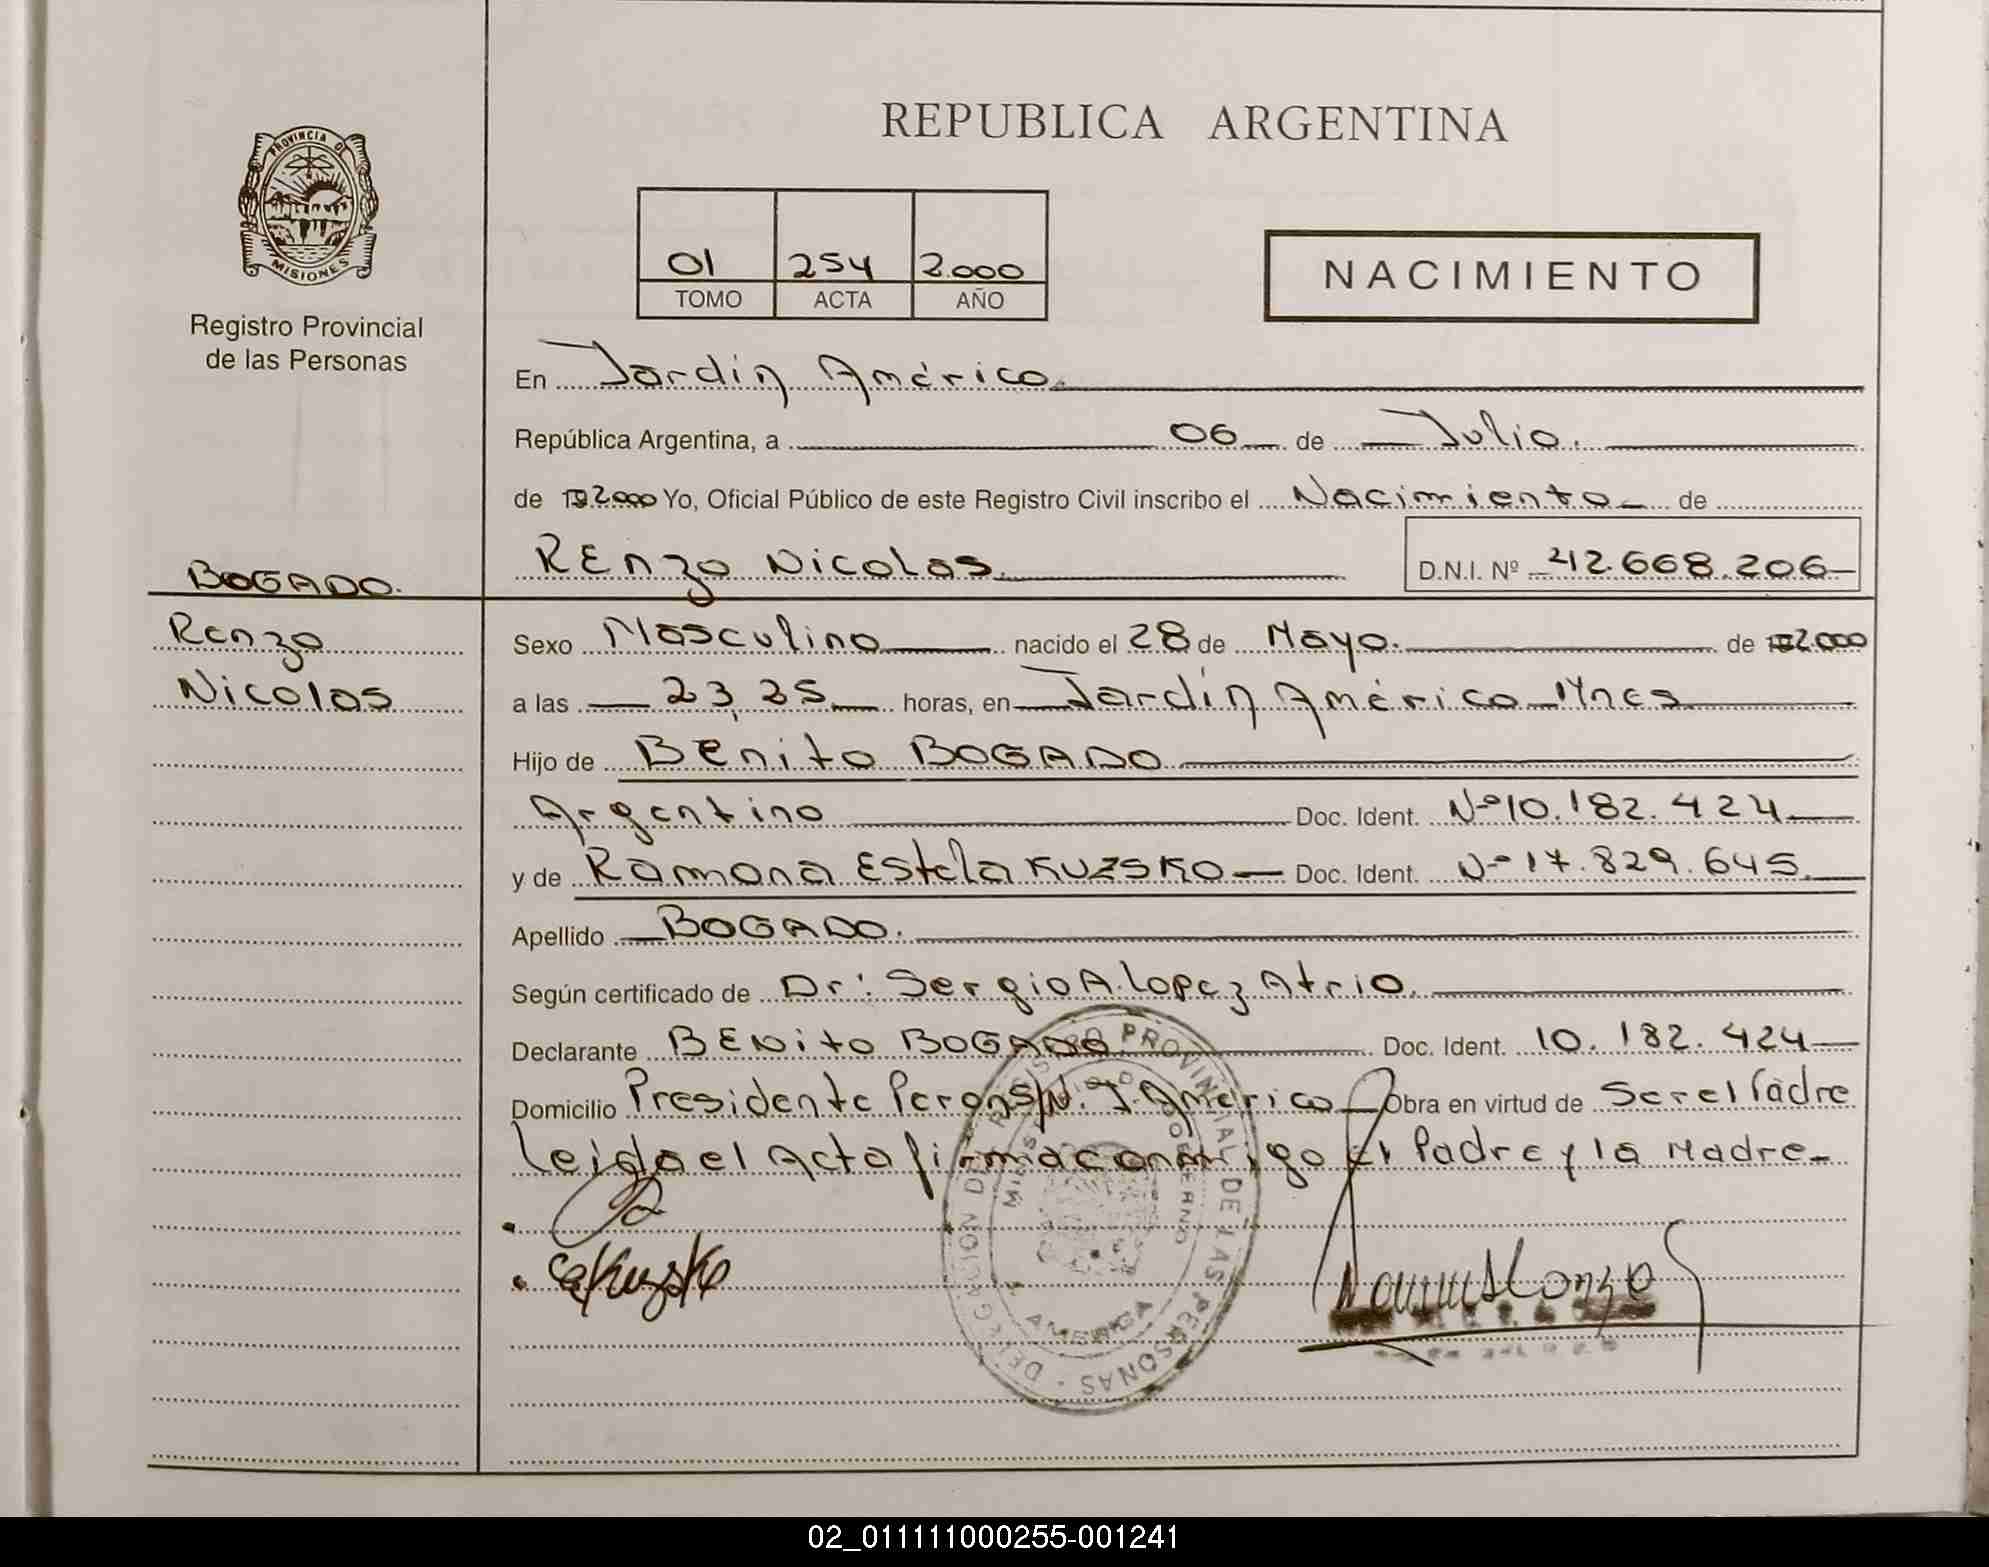 PROVINCIA DE
MISIONES
Registro Provincial
de las Personas
REPUBLICA ARGENTINA
01 254 2.000
TOMO ACTA AÑO
NACIMIENTO
En Jardín América.
República Argentina, a 06 de Julio.
de 19 2.000 Yo, Oficial Público de este Registro Civil inscribo el Nacimiento de
BOGADO.
RENzo Nicolas. D.N.I. Nº 42.668.206
Renzo
Nicolas
Sexo Masculino nacido el 28 de Mayo. de 2.000
a las 23,35 horas, en Jardín América Mnes
Hijo de Benito BOGADO
Argentino Doc. Ident. Nº 10.182.424
y de Ramona Estela KUZSKO Doc. Ident. Nº 17.829.645.
Apellido BOGADO.
Según certificado de Dr: Sergio A. Lopez Atrio.
Declarante BENito BOGADO Doc. Ident. 10.182.424
Domicilio Presidente Peron S/N. J. América Obra en virtud de Ser el Padre
Leida el Acta firma conmigo El Padre y la Madre
REGISTRO PROVINCIAL DE LAS PERSONAS - DELEGACION
MINISTERIO DE GOBIERNO
AMERICA
02_011111000255-001241